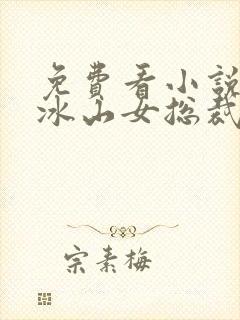 免費看小說
冰山女総裁
宗素梅